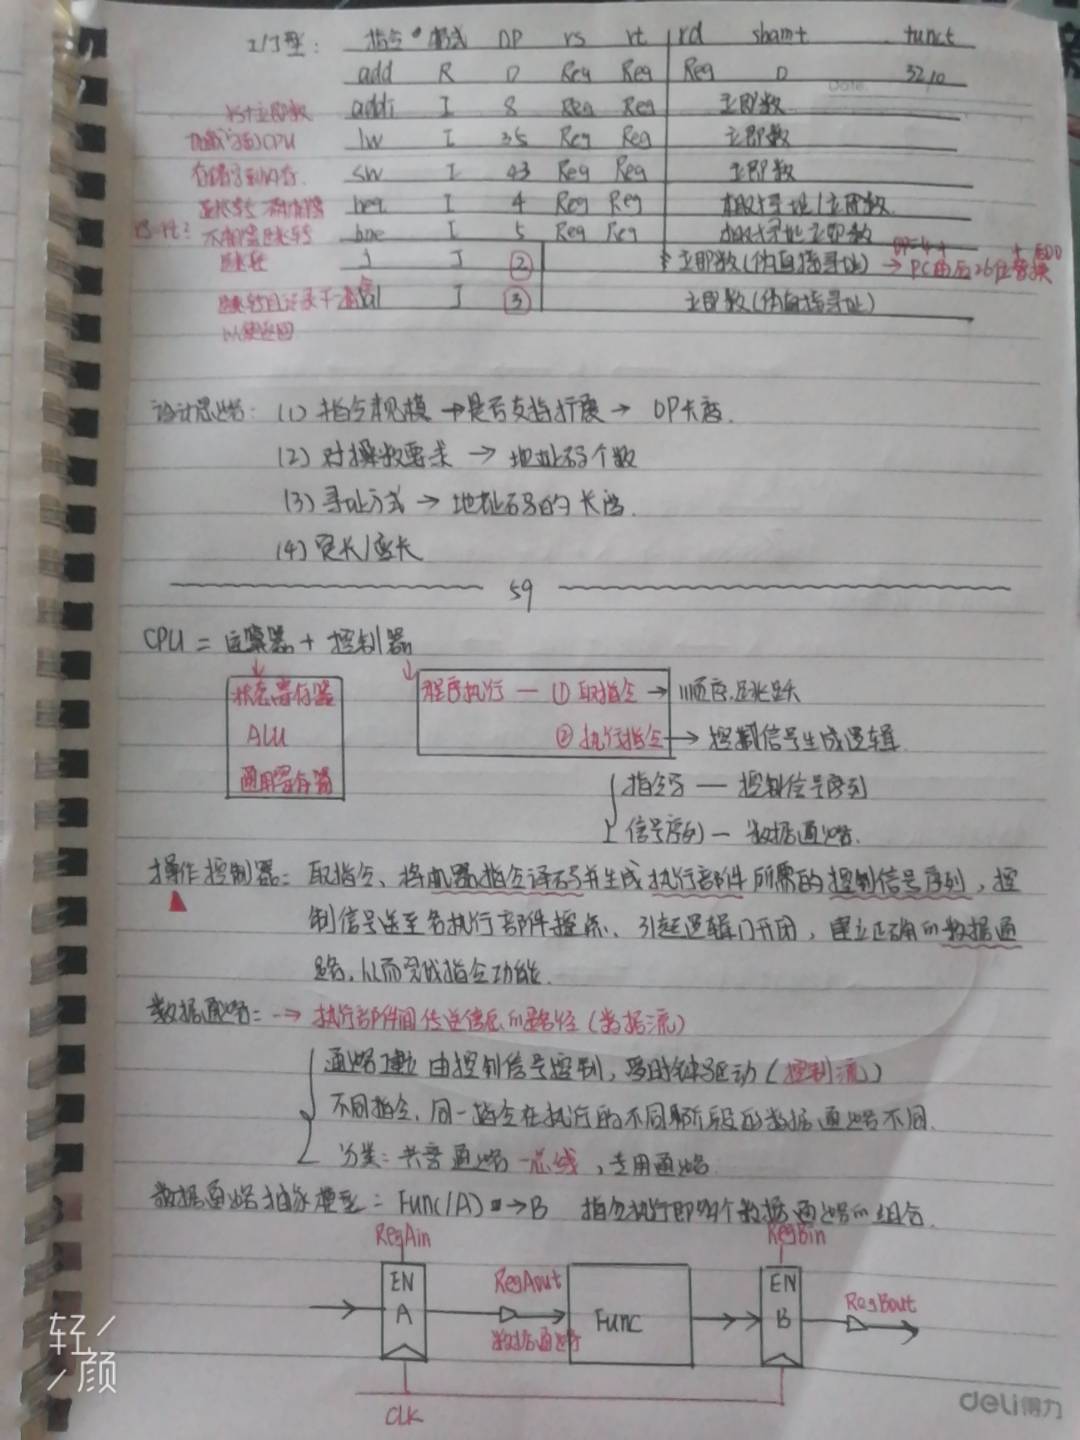 I/J型: 指令 格式 OP rs rt rd shamt funct
add R 0 Reg Reg Reg 0 32 10
Date
rs+立即数 addi I 8 Reg Reg 立即数
加载字到CPU lw I 35 Reg Reg 立即数
存储字到内存 sw I 43 Reg Reg 立即数
beq I 4 Reg Reg 相对寻址/立即数
rs-rt: 不相等跳转 bne I 5 Reg Reg 相对寻址 立即数
跳转 j J ② 立即数(伪直接寻址) → PC由后26位替换
jal J ③ 立即数(伪直接寻址)
以便返回
设计思路: (1) 指令规模 → 是否支持扩展 → OP长度.
(2) 对操作数要求 → 地址码个数
(3) 寻址方式 → 地址码的长度.
(4) 定长/变长
59
CPU = 运算器 + 控制器
状态寄存器
ALU
通用寄存器
程序执行 — ① 取指令 → 顺序,跳跃
② 执行指令 → 控制信号生成逻辑
指令字 — 控制信号序列
信号序列 — 数据通路.
操作控制器: 取指令、将机器指令译码并生成执行部件所需的控制信号序列,控
制信号送至各执行部件控点、引起逻辑门开闭,建立正确的数据通
路,从而完成指令功能.
数据通路: → 执行部件间传送信息的路径(数据流)
通路建立由控制信号控制,受时钟驱动(控制流)
不同指令、同一指令在执行的不同阶段的数据通路不同.
分类: 共享通路-总线,专用通路.
数据通路抽象模型: Func(A) → B 指令执行即多个数据通路的组合.
RegAin RegBin
EN RegAout EN
A Func B RegBout
数据通路
CLK
轻颜
deli得力